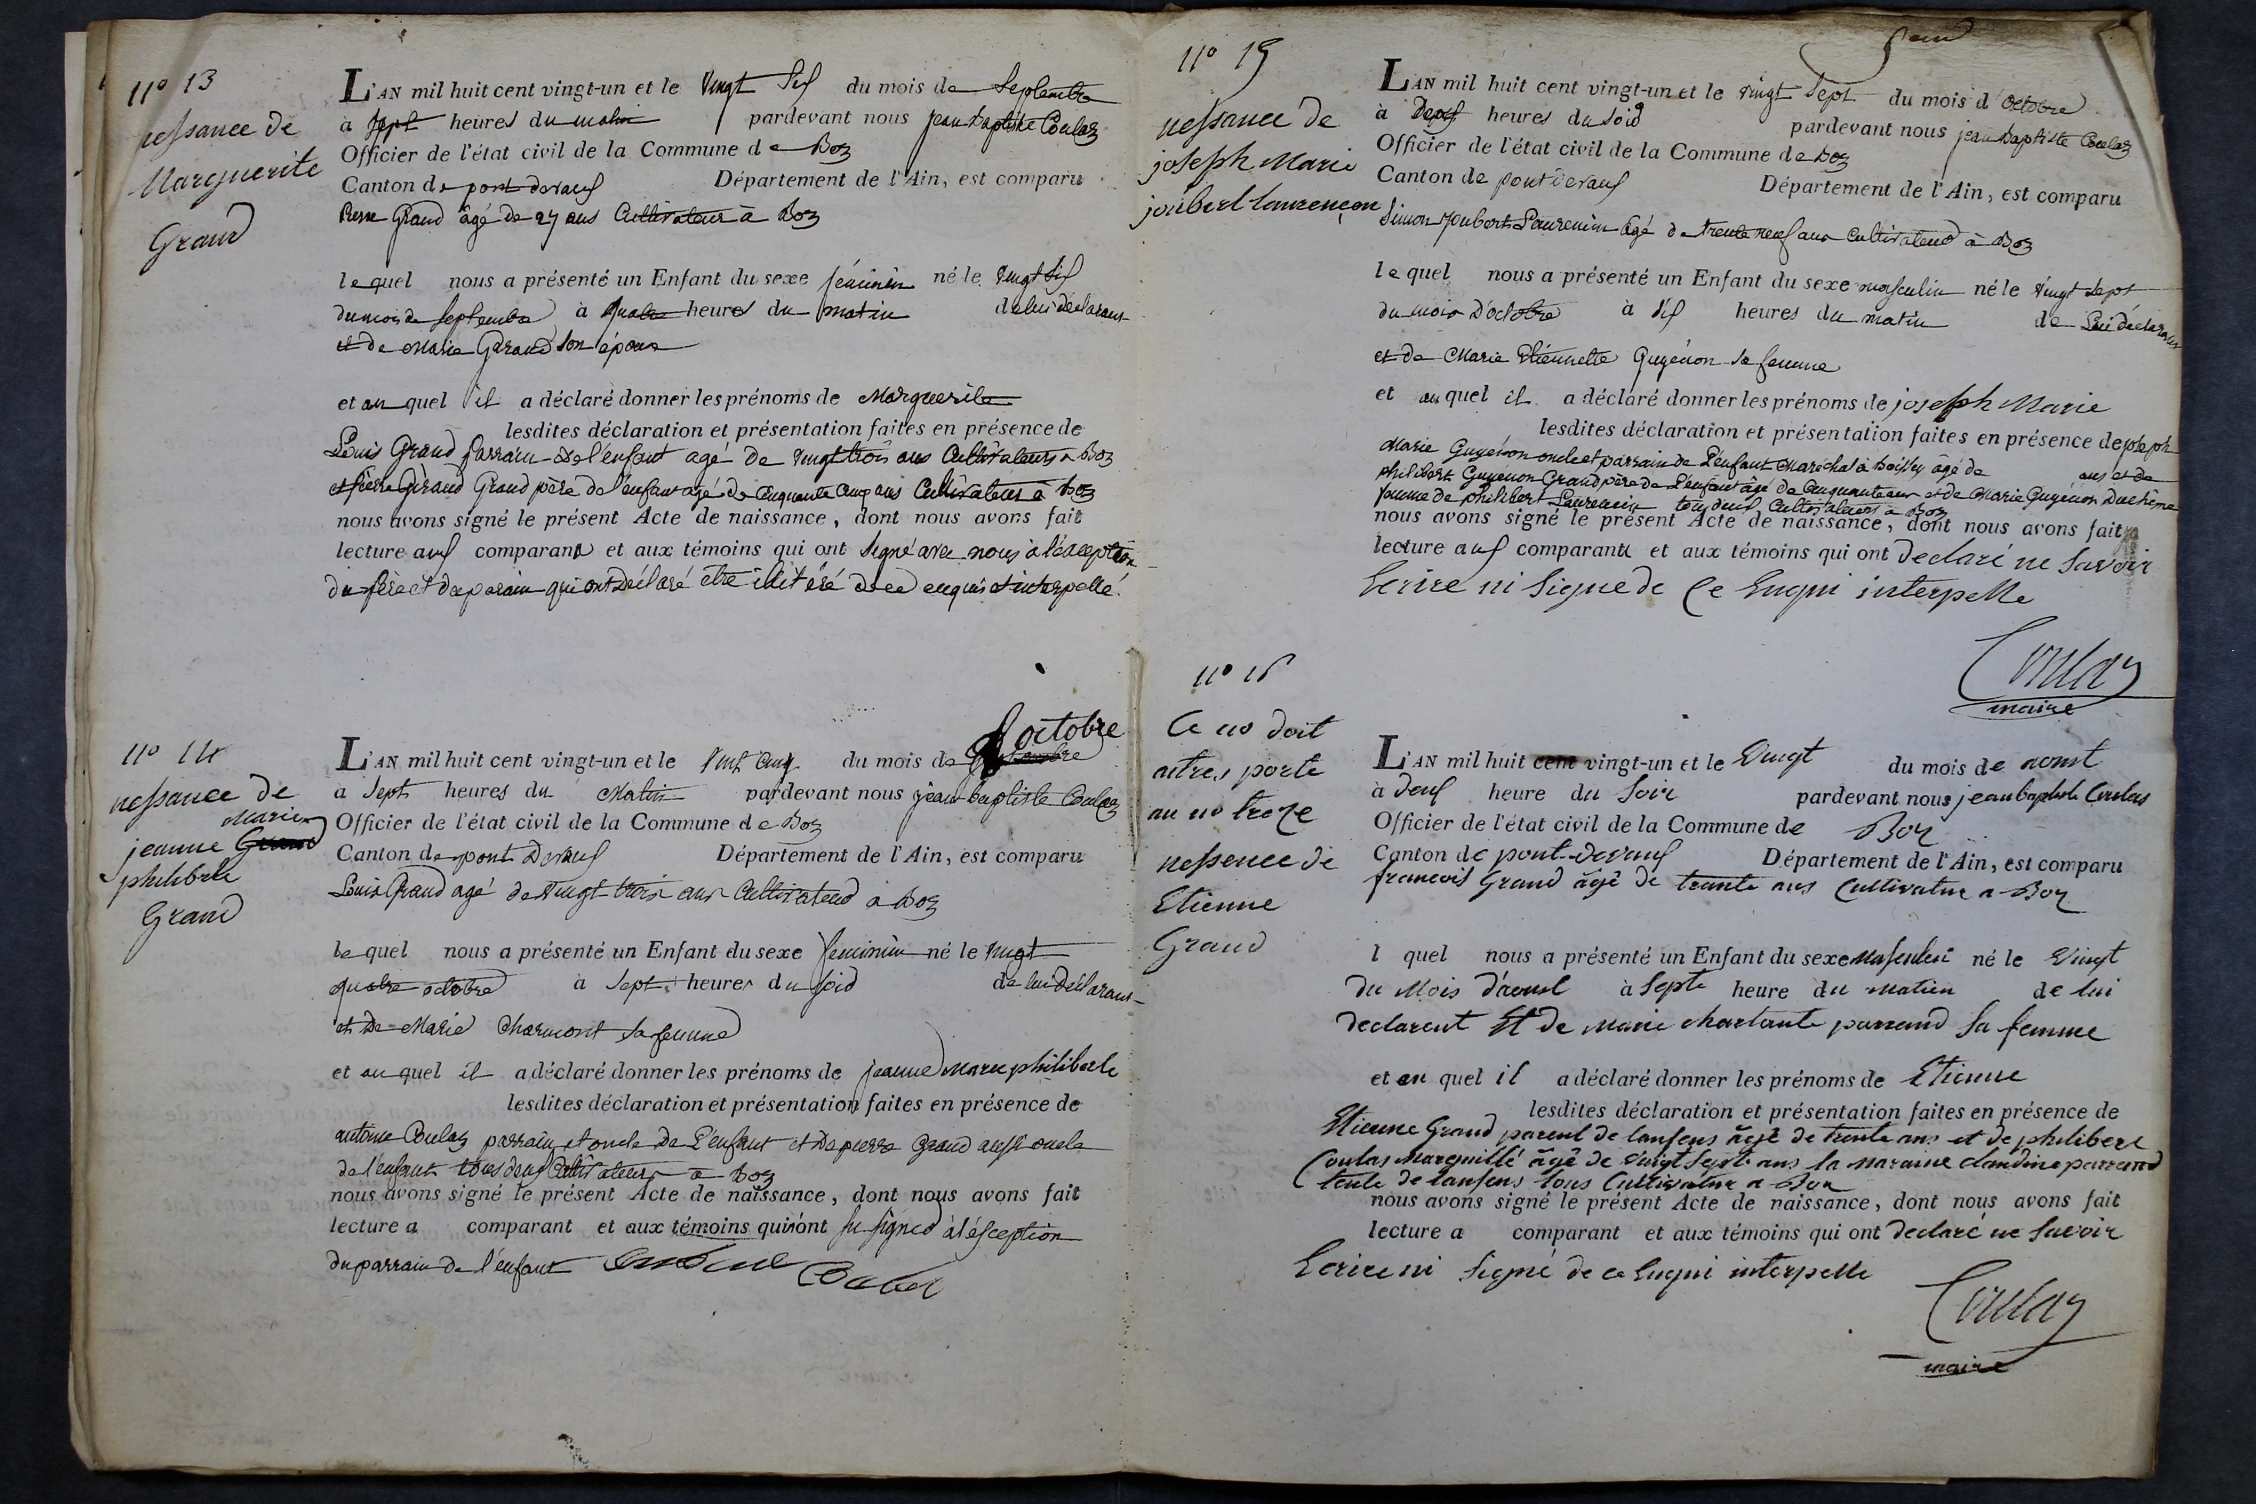 n° 13
nessance de
Marguerite
Grand
L'AN mil huit cent vingt-un et le vingt six du mois de Septembre
à sept heures du matin pardevant nous jean baptiste Coulas
Officier de l'état civil de la Commune de Boz
Canton de pont devaux Département de l'Ain, est comparu
Pierre Grand âgé de 27 ans Cultivateur à Boz
lequel nous a présenté un Enfant du sexe féminin né le vingt six
du mois de Septembre à quatre heures du matin de lui déclarant
et de Marie Giraud son épouse
et au quel il a déclaré donner les prénoms de Marguerite
lesdites déclaration et présentation faites en présence de
Louis Grand parrain de l'enfant agé de vingt trois ans Cultivateur a Boz
et pierre Giraud Grand père de l'enfant agé de Cinquante Cinq ans Cultivateur à Boz
nous avons signé le présent Acte de naissance, dont nous avons fait
lecture aux comparand et aux témoins qui ont signé avec nous à l'exception
du père et du parain qui ont déclaré être illitéré de ce enquis et interpellé.
n° 14
nessance de
Marie
jeanne Grand
philiberte
Grand
octobre
L'AN mil huit cent vingt-un et le vint cinq du mois de
à sept heures du Matin pardevant nous jean baptiste Coulas
Officier de l'état civil de la Commune de Boz
Canton de pont Devaux Département de l'Ain, est comparu
Louis Grand agé de vingt trois ans Cultivateur à Boz
lequel nous a présenté un Enfant du sexe feminin né le vingt
quatre octobre à sept heures du soir de lui déclarant
et de Marie Charmont sa femme
et au quel il a déclaré donner les prénoms de jeanne Marie philiberte
lesdites déclaration et présentation faites en présence de
antoine Coulas parrain et oncle de l'enfant et de pierre Grand aussi oncle
de l'enfant tous deux Cultivateurs a Boz
nous avons signé le présent Acte de naissance, dont nous avons fait
lecture a comparant et aux témoins qui n'ont su signer à l'éxception
du parrain de l'enfant
n° 15
nessance de
joseph Marie
joubert laurençon
L'AN mil huit cent vingt-un et le vingt sept du mois d'octobre
à deux heures du soir pardevant nous jean baptiste Coulas
Officier de l'état civil de la Commune de Boz
Canton de pont devaux Département de l'Ain, est comparu
Simon joubert Laurencin âgé de trente neuf ans Cultivateur à Boz
lequel nous a présenté un Enfant du sexe masculin né le vingt sept
du mois d'octobre à six heures du matin de Lui déclarant
et de Marie Etiennette Guyénon sa femme
et au quel il a déclaré donner les prénoms de joseph Marie
lesdites déclaration et présentation faites en présence de joseph
Marie Guyénon oncle et parrain de l'enfant Maréchal à boissey âgé de ans et de
philibert Guyénon Grand père de l'enfant âgé de Cinquante ans et de Marie Guyénon
femme de philibert Laurencin tous deux Cultivateurs a Boz
nous avons signé le présent Acte de naissance, dont nous avons fait
lecture aux comparant et aux témoins qui ont declaré ne savoir
Ecrire ni Signe de Ce Enqui interpelle
Coulas
maire
n° 16
Ce no doit
autres porte
au no treze
nessence de
Etienne
Grand
L'AN mil huit cent vingt-un et le Vingt du mois de aoust
à deux heure du Soir pardevant nous jean baptiste Coulas
Officier de l'état civil de la Commune de Boz
Canton de pont-devaux Département de l'Ain, est comparu
francois Grand âgé de trante ans Cultivatur a Boz
l quel nous a présenté un Enfant du sexe Masculin né le Vingt
du Mois d'aoust à septe heure du Matien de lui
declarent Et de Marie parrand Sa femme
et au quel il a déclaré donner les prénoms de Etienne
lesdites déclaration et présentation faites en présence de
Etienne Grand parent de lanfens âgé de trente ans et de philibert
Coulas Marguillé âgé de vingt sept ans la Maraine claudine parrand
tente de lanfens tous Cultivatur a Boz
nous avons signé le présent Acte de naissance, dont nous avons fait
lecture a comparant et aux témoins qui ont declaré ne savoir
Ecrire ni Signé de ce Enqui interpelle
Coulas
maire